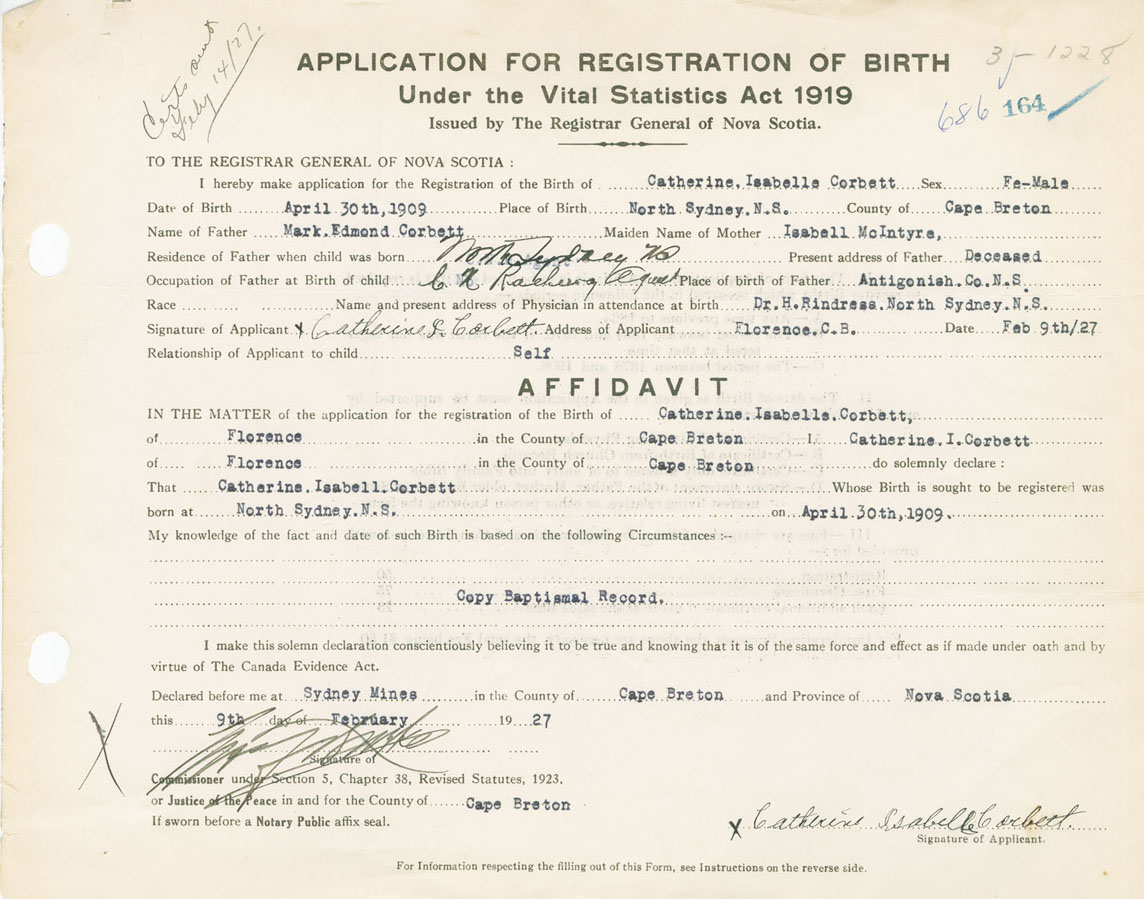 Certs out
Feby 14/27.
3-1228
686 164
APPLICATION FOR REGISTRATION OF BIRTH
Under the Vital Statistics Act 1919
Issued by The Registrar General of Nova Scotia.
TO THE REGISTRAR GENERAL OF NOVA SCOTIA :
I hereby make application for the Registration of the Birth of Catherine.Isabelle Corbett Sex Fe-Male
Date of Birth April 30th,1909 Place of Birth North Sydney.N.S. County of Cape Breton
Name of Father Mark.Edmond Corbett Maiden Name of Mother Isabell McIntyre,
Residence of Father when child was born North Sydney NS Present address of Father Deceased
Occupation of Father at Birth of child Place of birth of Father Antigonish.Co.N.S.
Race Name and present address of Physician in attendance at birth Dr.H.Rindress.North Sydney.N.S.
Signature of Applicant X Catherine I. Corbett. Address of Applicant Florence.C.B. Date Feb 9th/27
Relationship of Applicant to child Self
AFFIDAVIT
IN THE MATTER of the application for the registration of the Birth of Catherine.Isabelle.Corbett,
of Florence in the County of Cape Breton I, Catherine.I.Corbett
of Florence in the County of Cape Breton do solemnly declare :
That Catherine.Isabell.Corbett Whose Birth is sought to be registered was
born at North Sydney.N.S. on April 30th,1909.
My knowledge of the fact and date of such Birth is based on the following Circumstances :--
Copy Baptismal Record.
I make this solemn declaration conscientiously believing it to be true and knowing that it is of the same force and effect as if made under oath and by
virtue of The Canada Evidence Act.
Declared before me at Sydney Mines in the County of Cape Breton and Province of Nova Scotia
this 9th day of February 19 27
X
Signature of
Commissioner under Section 5, Chapter 38, Revised Statutes, 1923,
or Justice of the Peace in and for the County of Cape Breton
If sworn before a Notary Public affix seal.
X Catherine Isabelle Corbett.
Signature of Applicant.
For Information respecting the filling out of this Form, see Instructions on the reverse side.